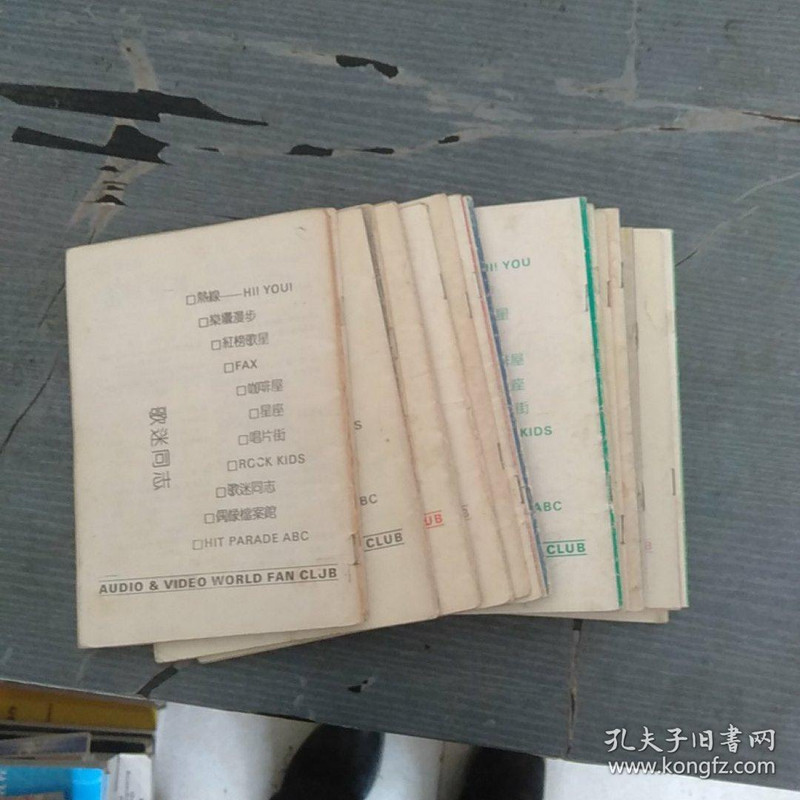 □熱線——HI! YOU!
□樂壇漫步
□紅榜歌星
□FAX
□咖啡屋
□星座
□唱片街
□ROCK KIDS
□歌迷同志
□偶像檔案館
□HIT PARADE ABC
歌迷同志
AUDIO & VIDEO WORLD FAN CLUB
S
BC
CLUB
UB
HI! YOU
星
屋
座
街
KIDS
ABC
CLUB
B
孔夫子旧書网
www.kongfz.com